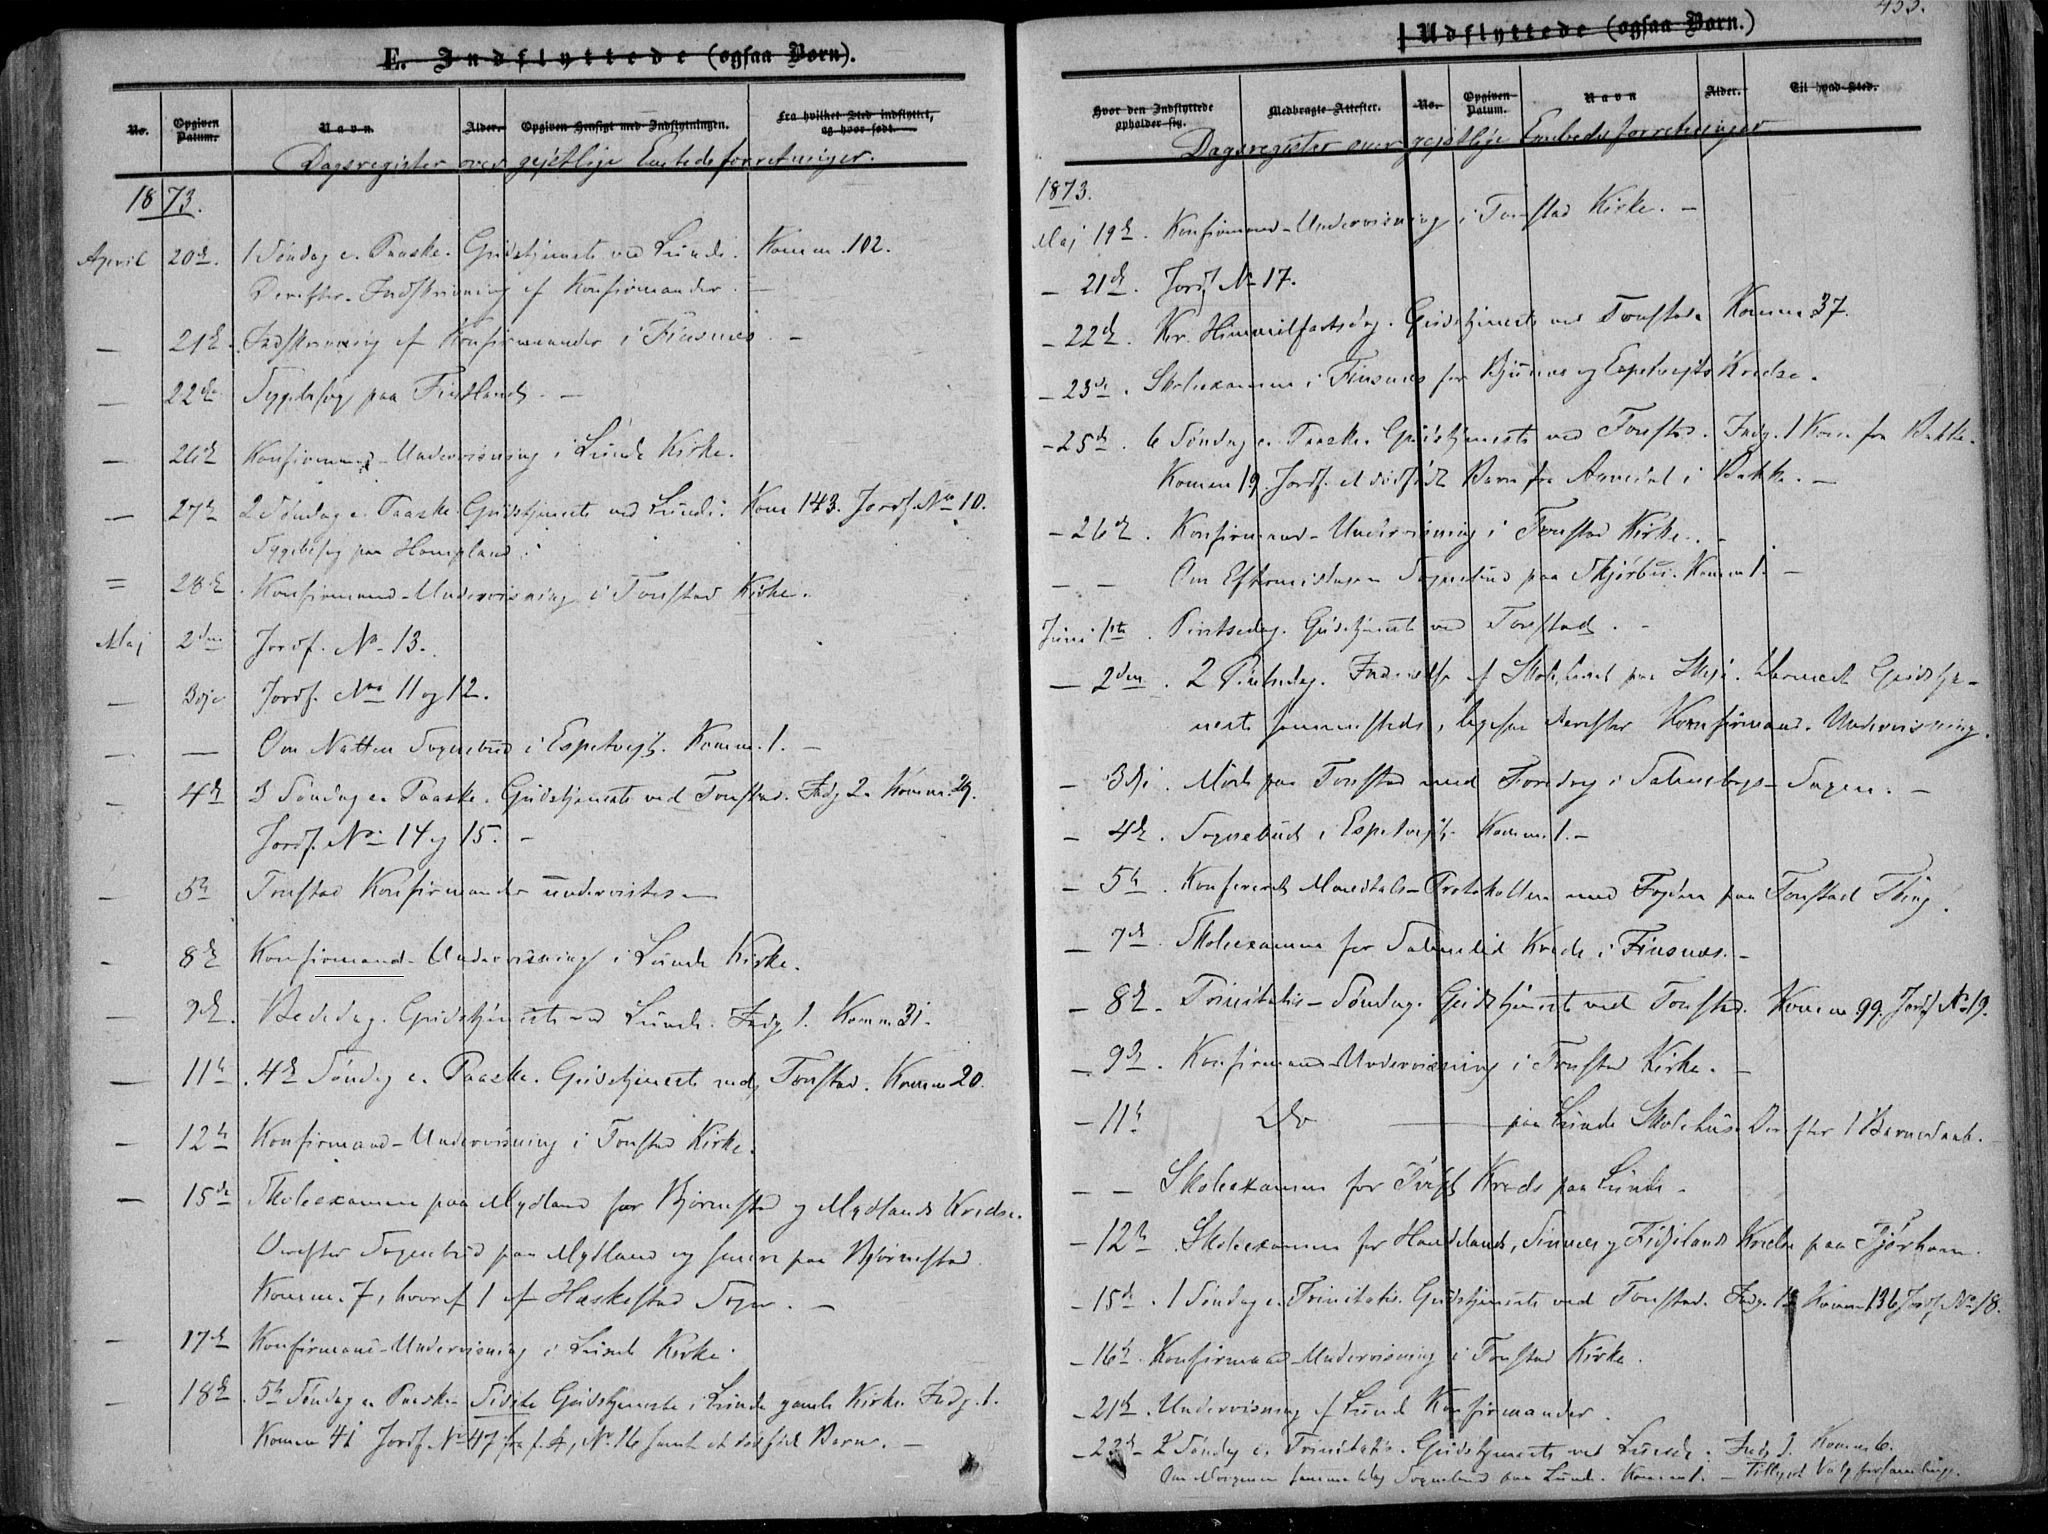 E. Indflyttede (ogsaa Børn).
No. Opgiven Datum. Navn. Alder. Opgiven Hensigt med Indflytningen. Fra hvilket Sted indflyttet, og hvor født.
Dagsregister over gejstlige Embedsforretninger.
1873.
April 20de. 1 Søndag e. Paaske. Gudstjeneste ved Lunde. Komm. 102.
Derefter Indskrivning af Konfirmander. —
— 21de. Indskrivning af Konfirmander i Finsnes. —
— 22de Sygebesøg paa Fintland. —
— 26de Konfirmand-Undervisning i Lunde Kirke.
— 27de 2 Søndag e. Paaske. Gudstjeneste ved Lunde. Kom 143. Jordf. No 10.
Sygebesøg paa Hompland.
= 28de. Konfirmand-Undervisning i Tonstad Kirke.
Maj 2den Jordf. No 13.
— 3dje Jordf. No 11 og 12.
— — Om Natten Sognebud i Espetvejt. Komm. 1. —
— 4de 3 Søndag e. Paaske. Gudstjeneste ved Tonstad. Indg 2. Komm. 29.
Jordf. No 14 og 15. —
— 5te Tonstad Konfirmander undervistes —
— 8de Konfirmand-Undervisning i Lunde Kirke.
— 9de. Bededag. Gudstjeneste ved Lunde. Indg. 1. Komm 31.
— 11te. 4de Søndag e. Paaske. Gudstjeneste ved Tonstad. Komm 20.
— 12te Konfirmand-Undervisning i Tonstad Kirke.
— 15de Skoleexamen paa Mydland for Bjørnestad og Mydlands Kredse.
Derefter Sognebud paa Mydland og senere paa Bjørnestad.
Komm. 7, hvoraf 1 af Heskestad Sogn. —
— 17de Konfirmand-Undervisning i Lunde Kirke.
— 18de. 5te Søndag e. Paaske. Sidste Gudstjeneste i Lunde gamle Kirke. Indg. 1.
Komm 41 Jordf. No 47 fra f. A, No. 16 samt et dødfødt Barn. —
Udflyttede (ogsaa Børn.)
Hvor den Indflyttede opholder sig. Medbragte Attester. No. Opgiven Datum. Navn Alder. Til hvad Sted.
Dagsregister over gejstlige Embedsforretninger
1873.
Maj 19de. Konfirmand-Undervisning i Tonstad Kirke. —
— 21de. Jordf No 17.
— 22de. Kr. Himmelfartsdag. Gudstjeneste ved Tonstad. Komm 37.
— 23de. Skoleexamen i Finsnes for og Espetvejts Kredse.
— 25de. 6 Søndag e. Paaske. Gudstjeneste ved Tonstad. Indg. 1 Kone fra Bakke.
Komm 19. Jordf. et dødfødt Barn fra i Bakke. —
— 26de. Konfirmand-Undervisning i Tonstad Kirke. —
— — Om Eftermiddagen Sognebud paa Skjørbu. Komm 1. —
Juni 1ste. Pintsedag. Gudstjeneste ved Tonstad. —
— 2den. 2 Pintsedag. Indvielse af Skolehuset paa . Gudstje-
neste sammesteds, derefter Konfirmand-Undervisning.
— 3dje. Møde paa Tonstad med Foredrag i Salmebogs-Sagen. —
— 4de. Sognebud i Espetvejt. Komm. 1. —
— 5te. Konfereret Mandtals-Protokollen med Fogden paa Tonstad Thing.
— 7de. Skoleexamen for Salmelid Kreds i Finsnes. —
— 8de. Trinitatis-Søndag. Gudstjeneste ved Tonstad. Komm 99. Jordf No 19.
— 9de. Konfirmand-Undervisning i Tonstad Kirke. —
— 11te Do — paa Lunde Skolehus. Derefter 1 Barnedaab. —
— — Skoleexamen for Kreds paa Lunde —
— 12te. Skoleexamen for Haudelands, Sinnes og Fidjelands Kredse paa Tjørhom.
— 15de. 1 Søndag e. Trinitatis. Gudstjeneste ved Tonstad. Indg. Komm 136 Jordf. No 18.
— 16de. Konfirmand-Undervisning i Tonstad Kirke.
— 21de. Undervisning af Lunde Konfirmander.
— 22de. 2 Søndag e. Trinitatis. Gudstjeneste ved Lunde. Indg 2. Komm 6.
Om Morgenen samme Dag Sognebud paa Lunde. Komm 1. — Tilliged Valgforsamling.